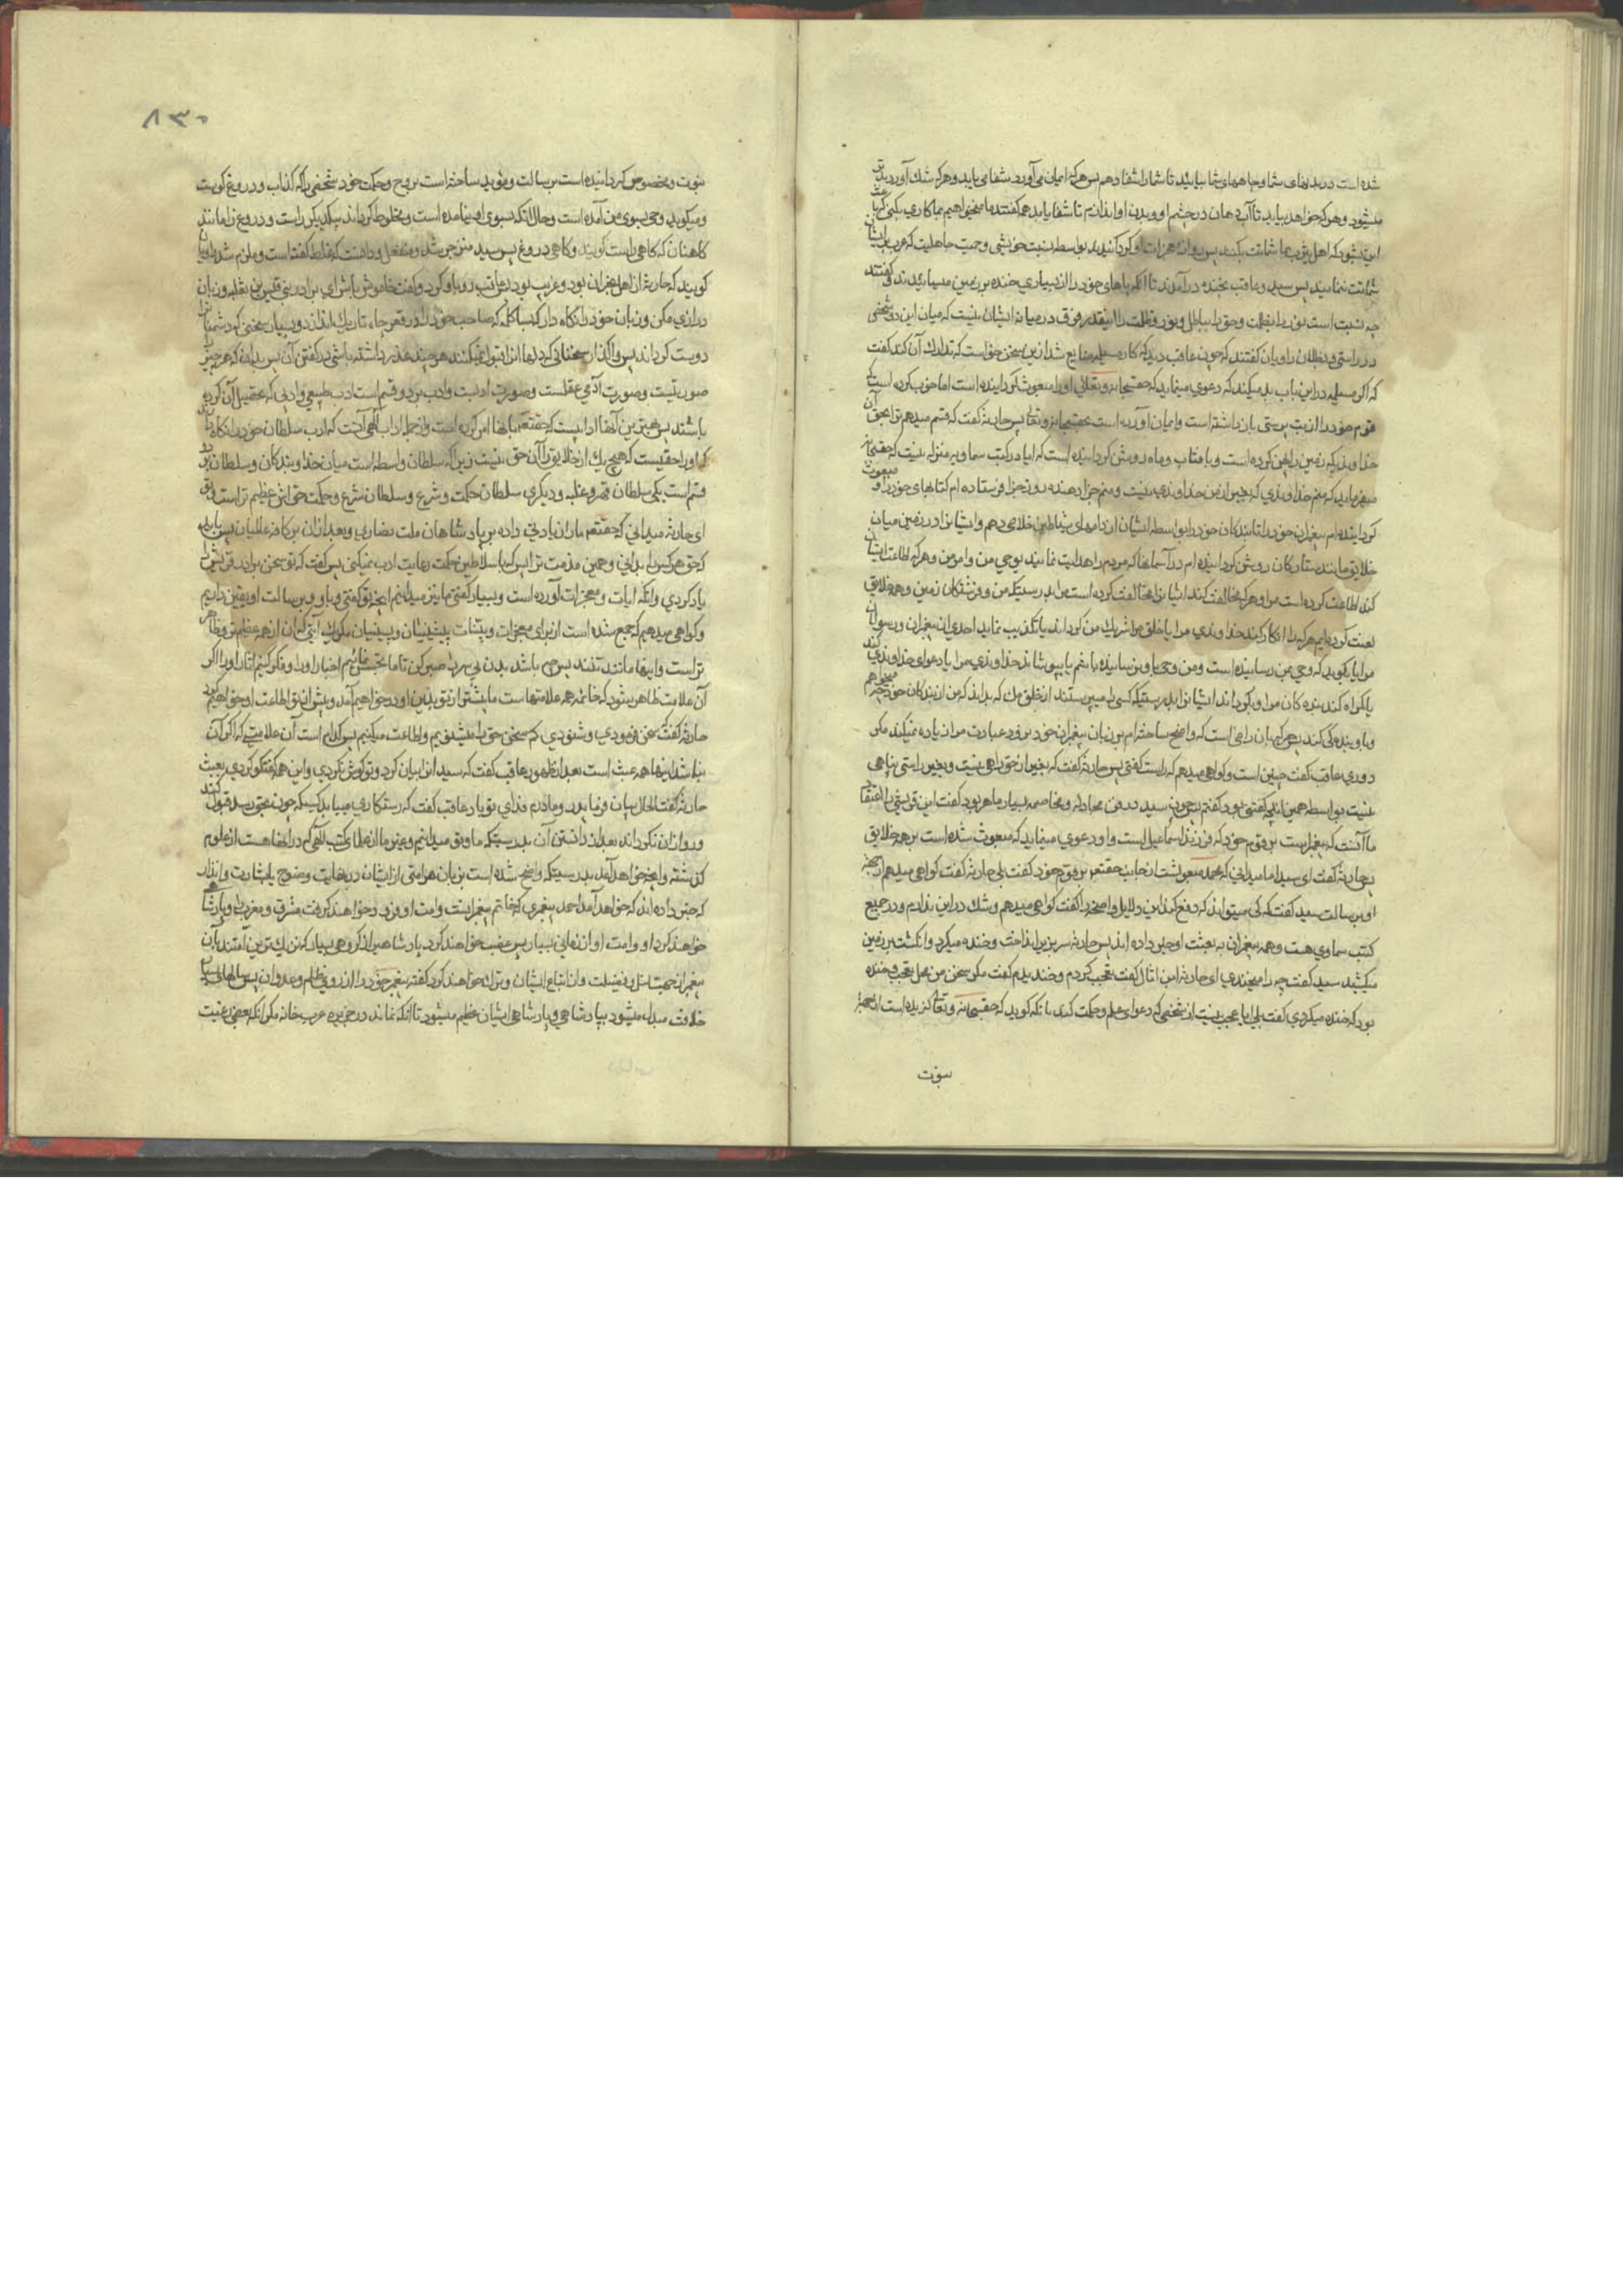 شده است در بدنهای شما و چاههای شما بیائید تا شما را شفا دهم پس هر که ایمان می آورد شفا می یابد و هر که شک آورد بدتر
میشود و هر که خواهد بیاید تا آب دهان در چشم او و بدن او اندازم تا شفا یابد همه گفتند ما نمیخواهیم مبادا کاری بکنی که باعث
این شود که اهل یثرب بما شماتت بکنند پس
شماتت نمایند پس سید و عاقب بخنده درآمدند تا آنکه پاهای خود را از بسیاری خنده بر زمین میسائیدند و گفتند
چه نسبت است نور را بظلمت و حق را بباطل و نور و ظلمت را اینقدر فرق در میانه ایشان نیست که میان این دو شخص
در راستی و بطلان راویان گفتند که چون عاقب دید که کار مسیلمه ضایع شد ازین سخن خواست که تدارک آن کند گفت
که اگر مسیلمه در این باب بد میکند که دعوی مینماید که حقسبحانه و تعالی او را مبعوث گردانیده است اما خوب کرده است که
قوم خود را از بت پرستی بازداشته است و ایمان آورده است بحقسبحانه و تعالی پس حارثه گفت که قسم میدهم ترا بحق آن
خداوندی که زمین را پهن کرده است و بآفتاب و ماه روشن گردانیده است که آیا در کتب سماویه منزله نیست که حقسبحانه
میفرماید که منم خداوندی که بغیر از من خداوندی نیست و منم جزا دهنده روز جزا فرستاده ام کتابهای خود را و مبعوث
گردانیده ام پیغمبران خود را تا بندگان خود را بواسطه ایشان از دامهای شیاطین خلاصی دهم و ایشانرا در زمین میان
خلایق مانند ستارگان روشن گردانیده ام در آسمانها که مردم را هدایت نمایند بوحی من و امر من و هر که اطاعت ایشان
کند اطاعت کرده است مرا و هر که مخالفت کند ایشانرا مخالفت کرده است مرا بدرستیکه من و فرشتگان زمین و همه خلایق
لعنت کرده ایم هر که را انکار کند خداوندی مرا یا خلق مرا شریک من گرداند یا تکذیب نماید احدی از پیغمبران و رسولان
مرا یا گوید که وحی بمن رسانیده است و من وحی باو نرسانیده باشم یا بپوشاند خداوندی مرا یا دعوای خداوندی کند
یا گمراه کند بندگان مرا و گرداند ایشانرا بدرستیکه کسی مرا میپرستند از خلق من که بداند که من از بندگان خود چه میخواهم
و باو بندگی کند پس هر که بآن راهی است که واضح ساخته ام بر زبان پیغمبران خود نرود عبادت مرا زیاده نمیکند مگر
دوری عاقب گفت چنین است و گواهی میدهم که راست گفتی پس حارثه گفت که بغیر از حق راهی نیست و بغیر راستی پناهی
نیست بواسطه همین آنچه گفتنی بود گفتم پس چون سید در فن مجادله و مخاصمه بسیار ماهر بود گفت این قریشی را اعتقاد
ما آنست که پیغمبر است بر قوم خود که فرزندزاده اسماعیل است و او دعوی مینماید که مبعوث شده است بر همه خلایق
پس حارثه گفت ای سید اما میدانی که محمد مبعوث است از جانب حقتعم بر قوم خود گفت بلی حارثه گفت گواهی میدهم از جهة
او برسالت سید گفت که کی میتواند که دفع کند این دلایل واضحه را گفت گواهی میدهم و شک در این ندارم و در جمیع
کتب سماوی هست و همه پیغمبران به بعثت او خبر داده اند پس حارثه سر بزیر انداخت و خنده میکرد و انگشت بر زمین
میکشید سید گفت چه را میخندی ای حارثه این اثال گفت تعجب کردم و خندیدم گفت مگر سخن من محل تعجب و خنده
بود که خنده میکردی گفت بلی آیا عجب نیست از شخصی که دعوای علم و حکمت کند با آنکه گوید که حقسبحانه و تعالی گزیده است از جهة
نبوت
۸۳۰
نبوت و مخصوص گردانیده است برسالت و مؤید ساخته است بروح و حکمت خود شخصی را که کذاب و دروغ گوست
و میگوید وحی بسوی من آمده است و حال آنکه بسوی او نیامده است و مخلوط گرداند بیکدیگر راست و دروغ را مانند
کاهنان که گاهی راست گویند و گاهی دروغ پس سید متزجر شد و منفعل و دانست که غلط گفته است و ملزم شد راویان
گویند که حارثه از اهل نجران نبود و غریب بود پس عاقب رو باو کرد و گفت خاموش باش ای برادر بنی قیس بن ثعلبه و زبان
درازی مکن و زبان خود را نگاه دار که بسا کلمه که صاحب خود را در قعر چاه تاریک اندازد و بسیار سخنی که دشمنانرا
دوست گرداند پس واگذار سخنانی که دلها انرا قبول نمیکند هر چند عذر داشته باشی در گفتن آن پس بدان که هر چیز را
صورتیست و صورت آدمی عقلست و صورت ادبست و ادب بر دو قسم است ادب طبیعی و ادبی که تحصیل آن کرده
باشند پس بهترین آنها آدابیست که حقتعم بآنها امر کرده است و از جمله آداب الهی آنست که ادب سلطان خود را نگاه دارند
که او را حقیست که هیچ یک از خلایق را آن حق نیست زیرا که سلطان واسطه است میان خدا و بندگان و سلطان بر دو
قسم است یکی سلطان قهر و غلبه و دیگری سلطان حکمت و شرع و سلطان شرع و حکمت حق اش عظیم تر است و تو
ای حارثه میدانی که حقتعم ما را زیادتی داده بر پادشاهان ملت نصاری و بعد از آن بر کافه عالمیان پس باید
که حق هر کس را بدانی و همین مذمت ترا بس که با سلاطین حکمت رعایت ادب نمیکنی پس گفت که تو سخن برادر قریش را
یاد کردی و آنکه آیات و معجزات آورده است و بسیار گفتی ما نیز میدانیم آنچه تو گفتی و باو و برسالت او یقین داریم
و گواهی میدهیم که جمع شده است از برای معجزات و بینات پیشینیان و پسینیان مگر یک آیتی که آن از همه عظیم تر و ظاهر
تر است و اینها مانند تنند پس چه باشد بدن بی سر پس صبر کن تا ما تجسس نمائیم اخبار او را و فکر کنیم آثار او را اگر
آن علامت ظاهر بشود که خاتمه همه علامتهاست ما پیشتر از تو بدین او در خواهیم آمد و پیش از تو اطاعت او خواهیم کرد
حارثه گفت سخن فرمودی و شنودی کم سخن حق را میشنویم و اطاعت میکنیم پس کدام است آن علامتی که اگر آن
نباشد اینها همه عبث است بعد از ظهور عاقب گفت که سید انرا بیان کرد و تو گوش نکردی و این همه گفتگو کردی بعبث
حارثه گفت الحال بیان فرما پدر و مادرم فدای تو باد عاقب گفت که رستگاری میباید کسیکه چون بحق رسد قبول کند
و رو از آن نگرداند بعد از دانستن آن بدرستیکه ما و تو میدانیم و غیر ما از علمای کتب الهی که در آنها هست از علوم
گذشته و آنچه خواهد آمد بدرستیکه واضح شده است بر زبان هر امتی از ایشان در نهایت وضوح بابشارت و انذار
که خبر داده اند که خواهد آمد احمد پیغمبری که خاتم پیغمبرانست و امت او فرو خواهند گرفت مشرق و مغرب را و پادشاهی
خواهند کرد او و امت او زمانی بسیار پس غصب خواهند کرد پادشاهی را گروهی بسیار که نزدیک ترین امتند بآن
پیغمبر از حیثیت اصل و فضیلت و از اتباع ایشان و ترک خواهند کرد گفته پیغمبر خود را از روی ظلم و عدوان پس سالهای بسیار
خلافت مبدل میشود بپادشاهی و پادشاهی ایشان عظیم میشود تا آنکه نماند در جزیره عرب خانه مگر آنکه بعضی رغبت